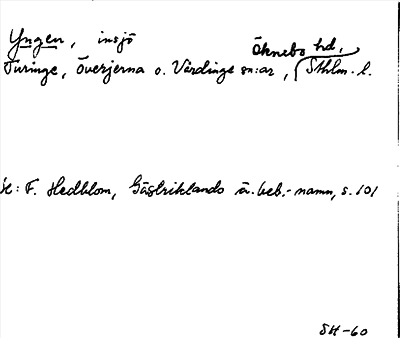 Yngen, insjö
Öknebo hd,
Turinge, Överjerna o. Vårdinge sn:ar, Sthlm. l.
Se: F. Hedblom, Gästriklands ä. beb.-namn, s. 101
SH-60